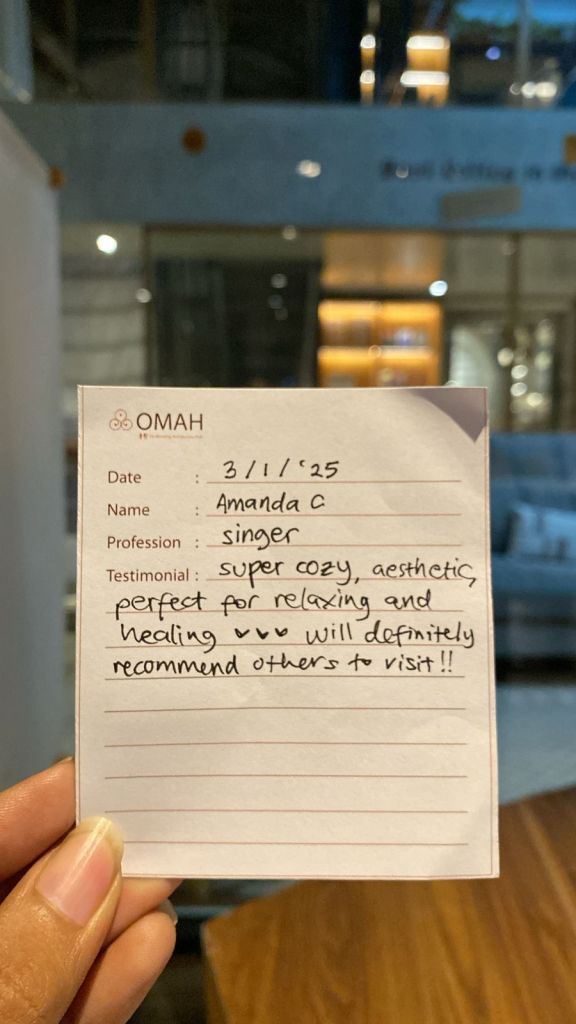 OMAH
Date : 3/1/'25
Name : Amanda C
Profession : singer
Testimonial : super cozy, aesthetic,
perfect for relaxing and
healing ✓✓✓ will definitely
recommend others to visit!!